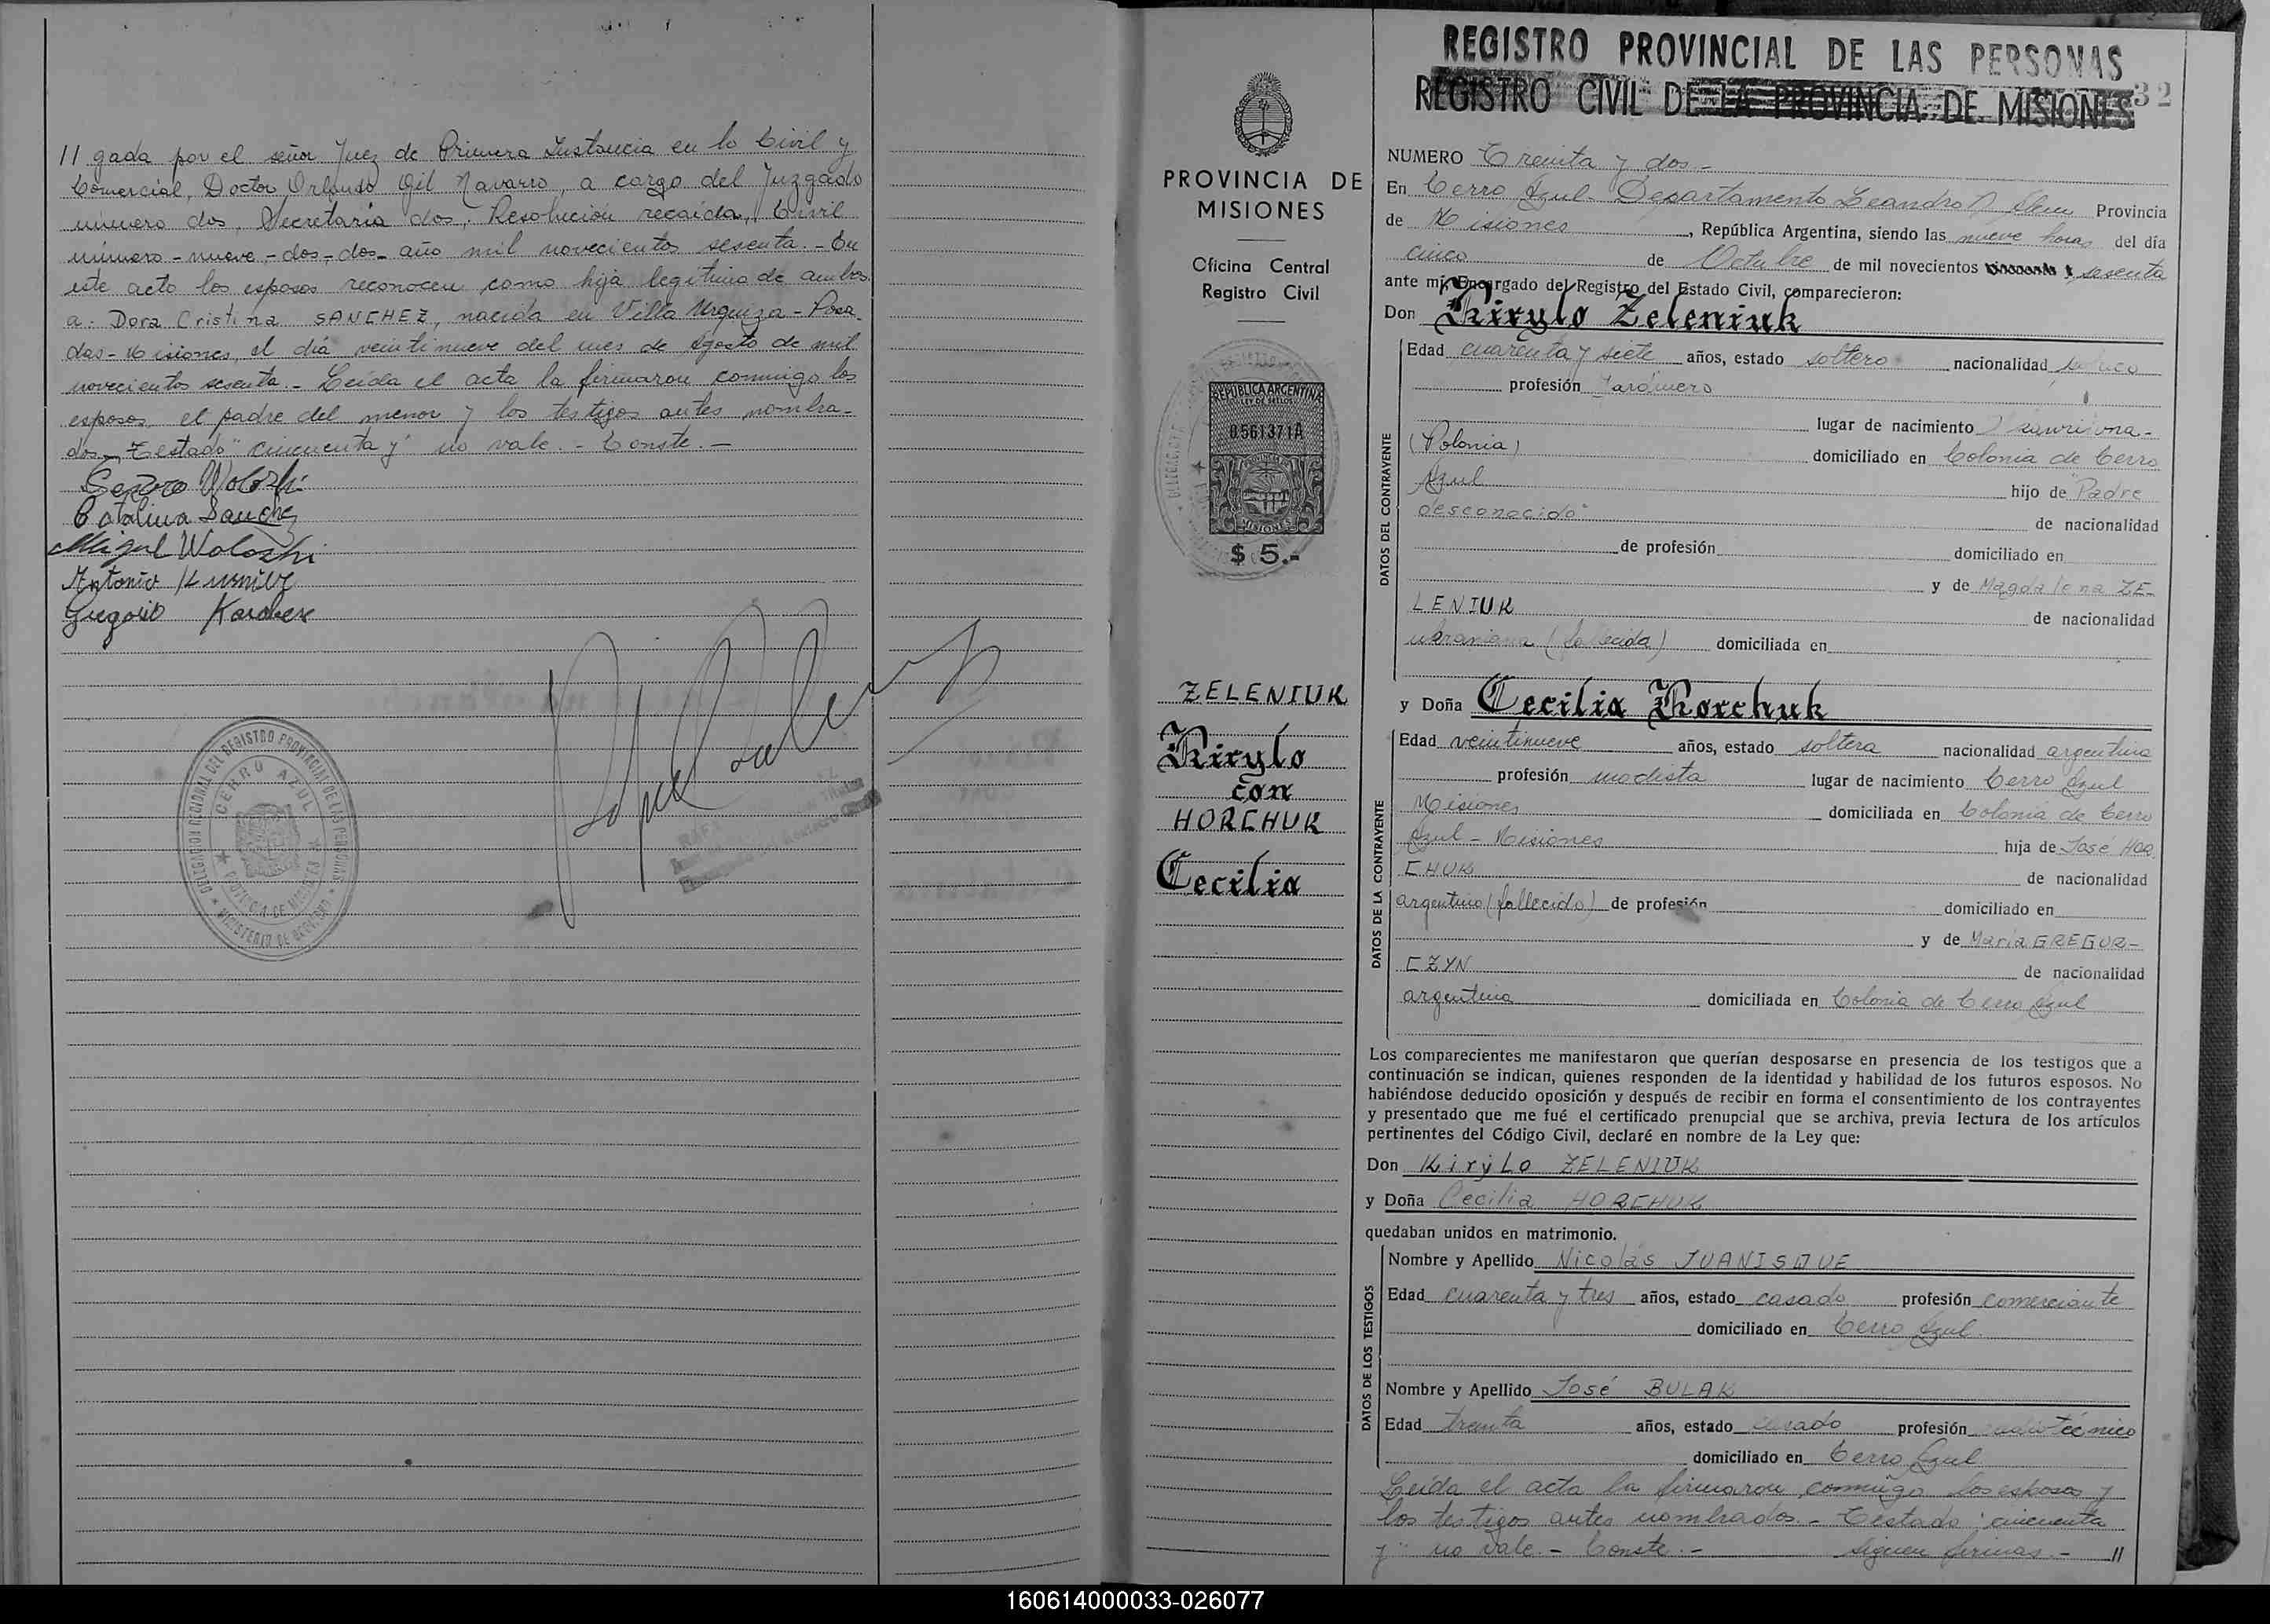 // gada por el señor Juez de Primera Instancia en lo Civil y
Comercial, Doctor Orlando Gil Navarro, a cargo del Juzgado
número dos, Secretaría dos; Resolución recaída, Civil
número - nueve - dos - dos - año mil novecientos sesenta. - En
este acto los esposos reconocen como hija legítima de ambos
a: Dora Cristina SANCHEZ, nacida en Villa Urquiza - Posa-
das - Misiones, el día veintinueve del mes de Agosto de mil
novecientos sesenta. - Leída el acta la firmaron conmigo los
esposos, el padre del menor y los testigos antes nombra-
dos. - Testado "cincuenta y" no vale. - Conste. -
Catalina Sanchez
Miguel Woloszki
Antonio
Gregorio
DELEGACION REGIONAL DEL REGISTRO PROVINCIAL DE LAS PERSONAS
CERRO AZUL
PROVINCIA DE MISIONES
MINISTERIO DE GOBIERNO
PROVINCIA DE
MISIONES
Oficina Central
Registro Civil
REPUBLICA ARGENTINA
LEY DE SELLOS
0561371A
PROVINCIA
MISIONES
$ 5.-
ZELENIUK
Kirylo
con
HORCHUK
Cecilia
REGISTRO PROVINCIAL DE LAS PERSONAS
REGISTRO CIVIL DE LA PROVINCIA DE MISIONES
32
NUMERO Treinta y dos -
En Cerro Azul - Departamento Leandro N Alem Provincia
de Misiones, República Argentina, siendo las nueve horas del día
cinco de Octubre de mil novecientos cincuenta y sesenta
ante mí, Encargado del Registro del Estado Civil, comparecieron:
Don Kirylo Zeleniuk
Edad cuarenta y siete años, estado soltero nacionalidad
profesión
lugar de nacimiento
(Polonia) domiciliado en Colonia de Cerro
Azul hijo de "Padre
desconocido" de nacionalidad
de profesión domiciliado en
y de Magdalena ZE-
LENIUK de nacionalidad
ukraniana (fallecida) domiciliada en
y Doña Cecilia Horchuk
Edad veintinueve años, estado soltera nacionalidad argentina
profesión modista lugar de nacimiento Cerro Azul
Misiones domiciliada en Colonia de Cerro
Azul - Misiones hija de José HOR
CHUK de nacionalidad
argentino (fallecido) de profesión domiciliado en
y de María GREGOR-
CZYN de nacionalidad
argentina domiciliada en Colonia de Cerro Azul
DATOS DEL CONTRAYENTE
DATOS DE LA CONTRAYENTE
Los comparecientes me manifestaron que querían desposarse en presencia de los testigos que a
continuación se indican, quienes responden de la identidad y habilidad de los futuros esposos. No
habiéndose deducido oposición y después de recibir en forma el consentimiento de los contrayentes
y presentado que me fué el certificado prenupcial que se archiva, previa lectura de los artículos
pertinentes del Código Civil, declaré en nombre de la Ley que:
Don Kirylo ZELENIUK
y Doña Cecilia HORCHUK
quedaban unidos en matrimonio.
DATOS DE LOS TESTIGOS
Nombre y Apellido Nicolás JUANISQUE
Edad cuarenta y tres años, estado casado profesión comerciante
domiciliado en Cerro Azul
Nombre y Apellido José BULAK
Edad treinta años, estado casado profesión radiotécnico
domiciliado en Cerro Azul
Leída el acta la firmaron conmigo los esposos y
los testigos antes nombrados. - Testado: "cincuenta
y" no vale. - Conste. - Siguen firmas. - //
160614000033-026077